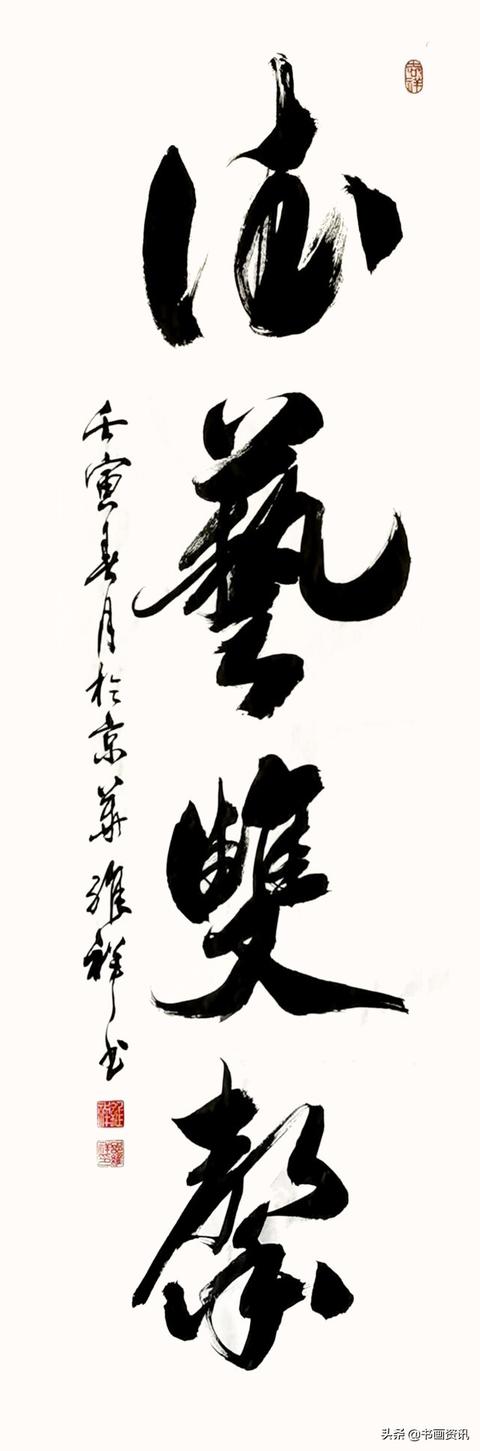 德藝雙馨
壬寅春月於京華 祥书
头条 @书画资讯